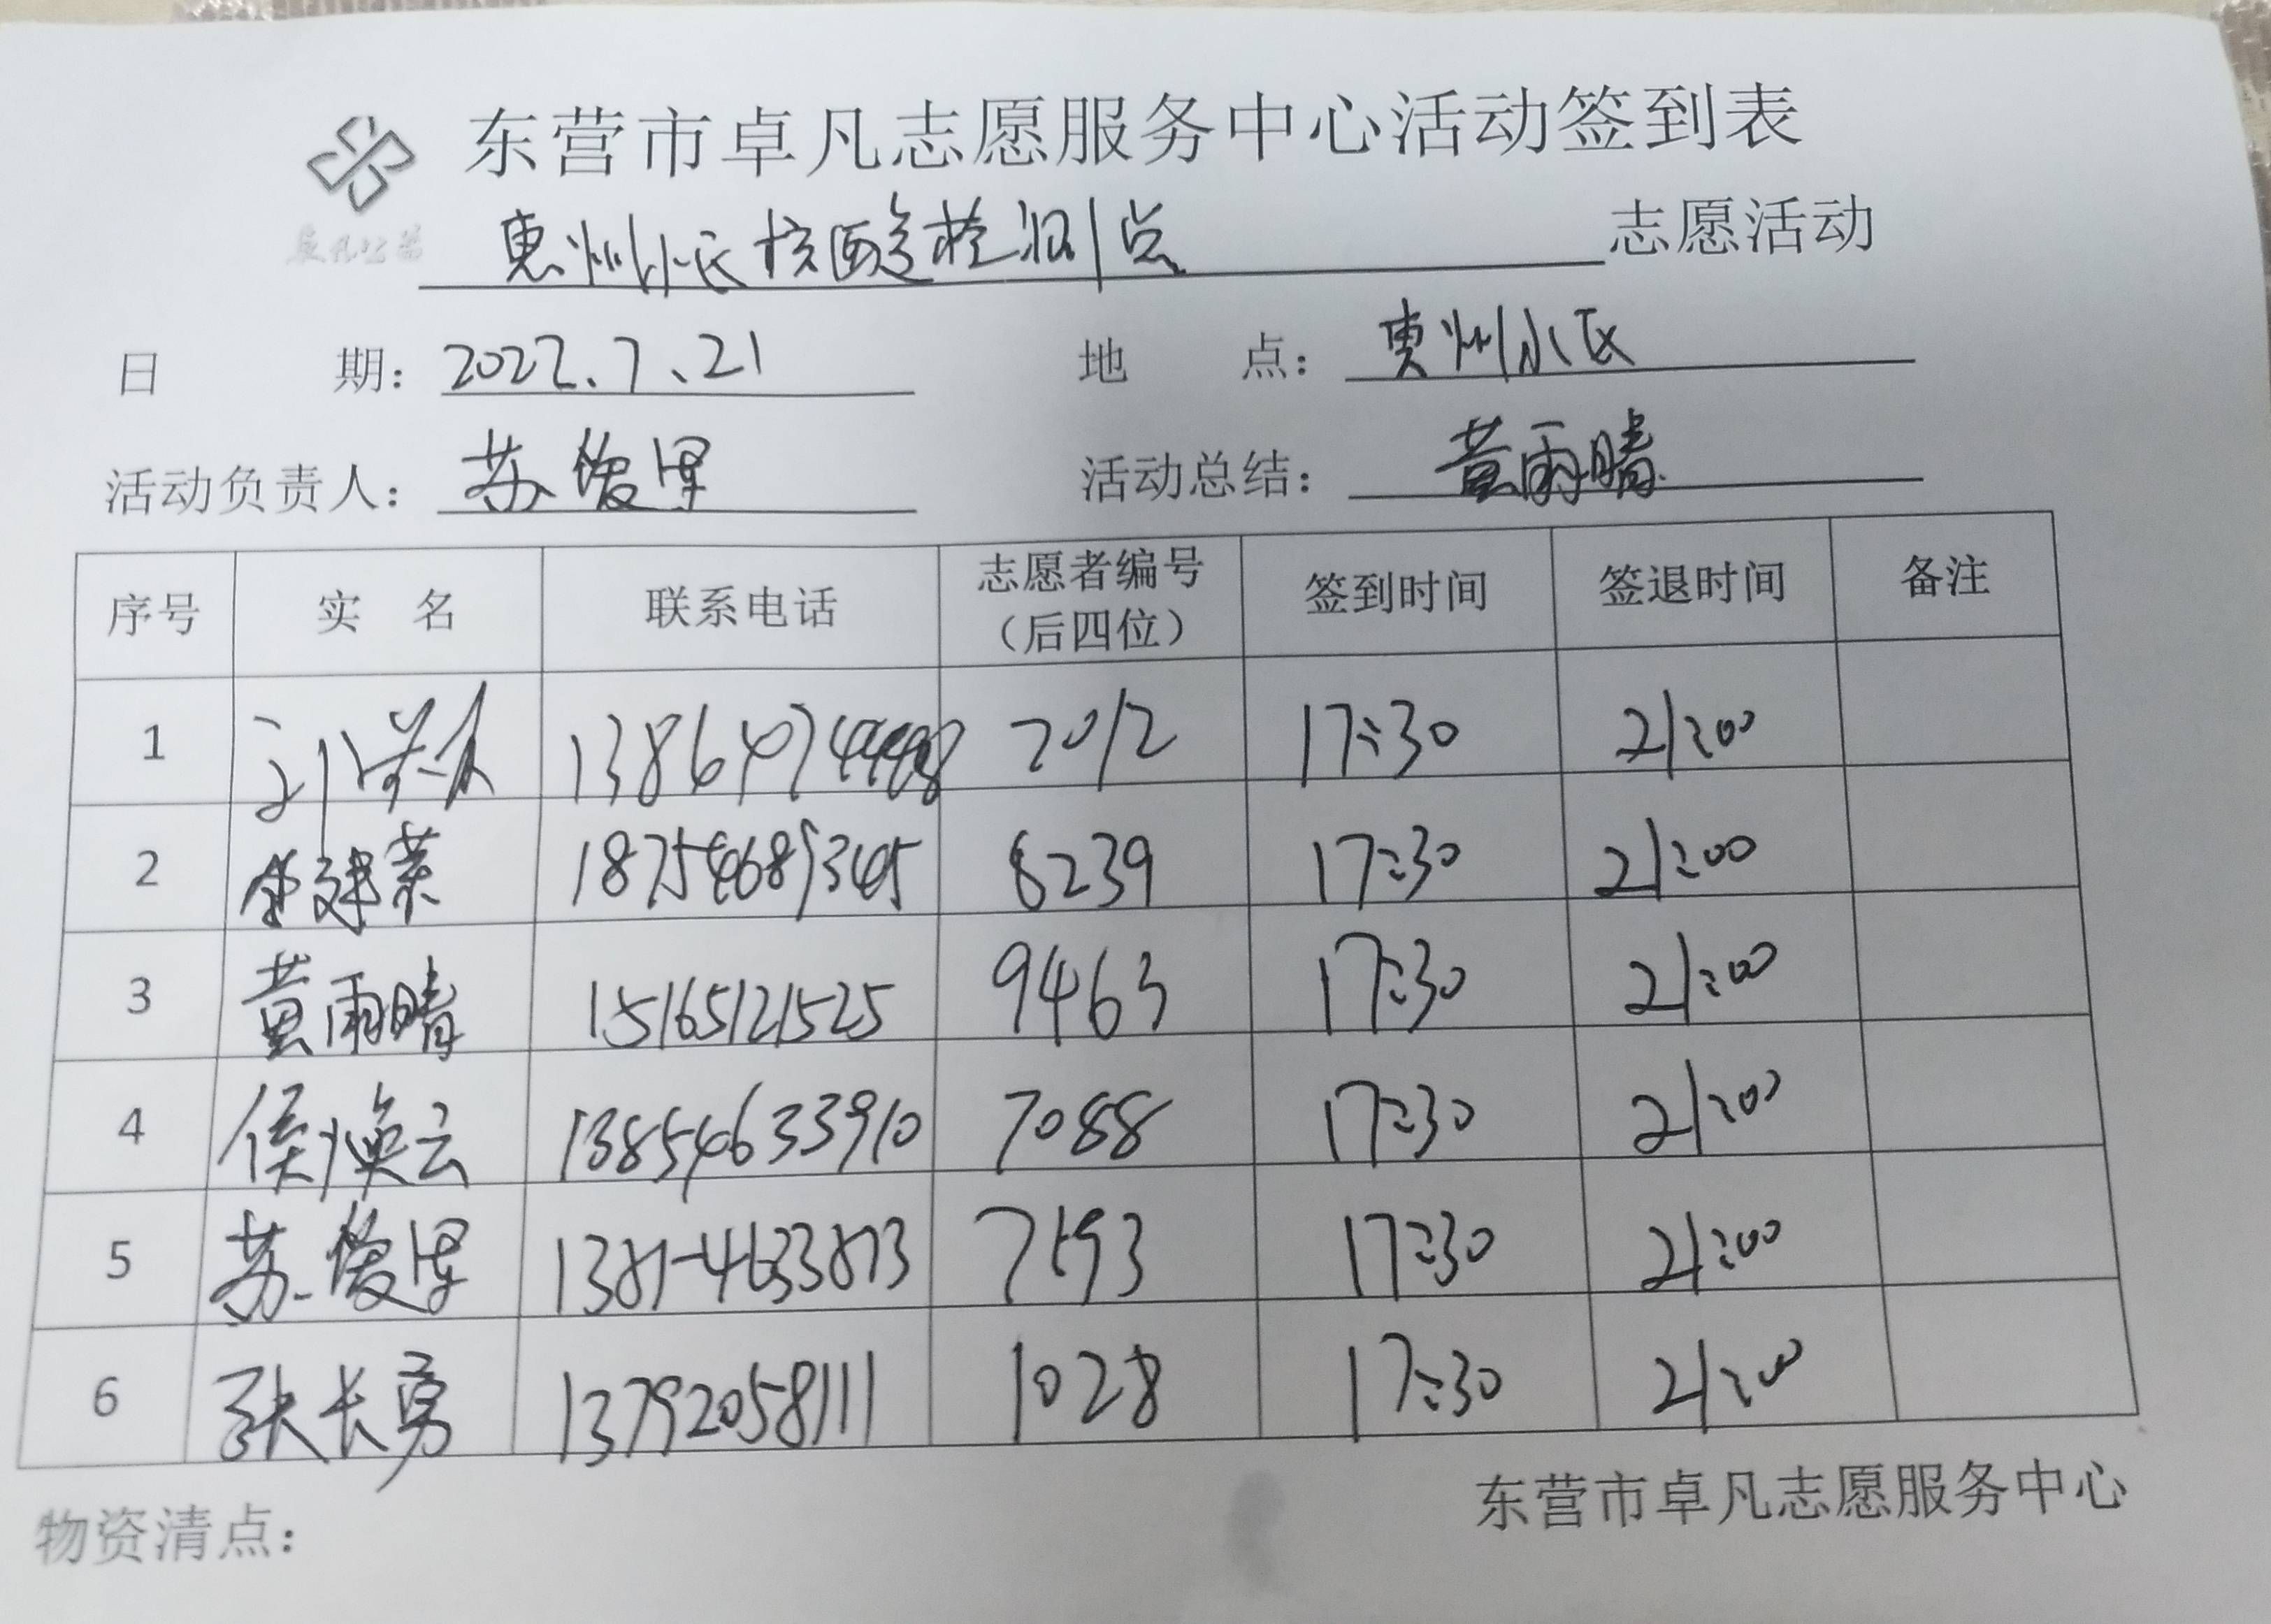 东营市卓凡志愿服务中心活动签到表
卓凡公益
惠州小区核酸检测点 志愿活动
日 期：2022.7.21 地 点：惠州小区
活动负责人：苏俊洋 活动总结：黄雨晴
序号 实 名 联系电话 志愿者编号（后四位） 签到时间 签退时间 备注
1 刘 7012 17:30 21:00
2 建荣 18754689345 8239 17:30 21:00
3 黄雨晴 15165121525 9463 17:30 21:00
4 侯焕云 13854633910 7088 17:30 21:00
5 苏 7593 17:30 21:00
6 张长勇 13792058111 1028 17:30 21:00
物资清点： 东营市卓凡志愿服务中心